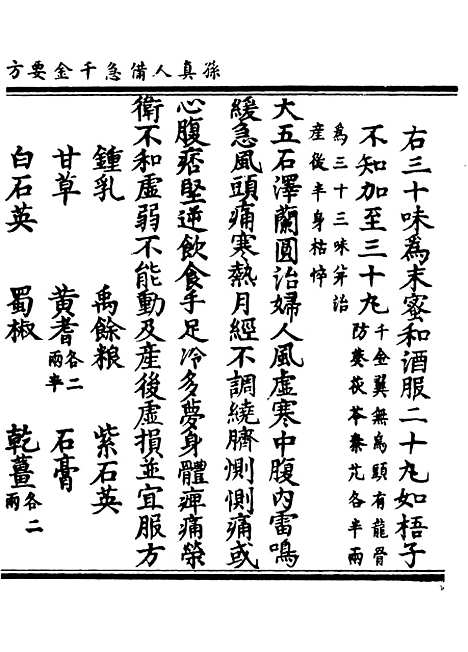 孫真人備急千金要方
右三十味為末蜜和酒服二十九如梧子
不知加至三十九千金翼無烏頭有龍骨
防葵茯苓秦艽各半兩
為三十三味并治
産後半身枯悴
大五石澤蘭圓治婦人風虛寒中腹内雷鳴
緩急風頭痛寒熱月經不調繞臍惻惻痛或
心腹痞堅逆飲食手足冷多夢身體痺痛榮
衛不和虛弱不能動及産後虛損並宜服方
鍾乳 禹餘粮 紫石英
甘草 黃耆各二兩半 石膏
白石英 蜀椒 乾薑各二兩